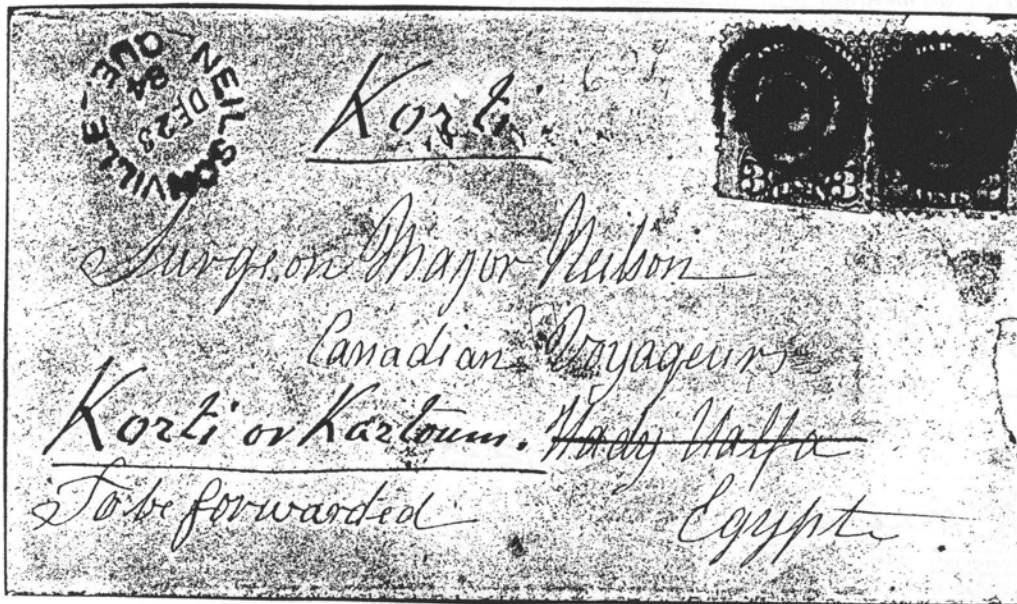 NEILSONVILLE - QUE
DE 23
84
Korti.
3 3
Surgeon Major Neilson
Canadian Voyageurs
Korti or Kartoum. Wady Halfa
To be forwarded Egypt